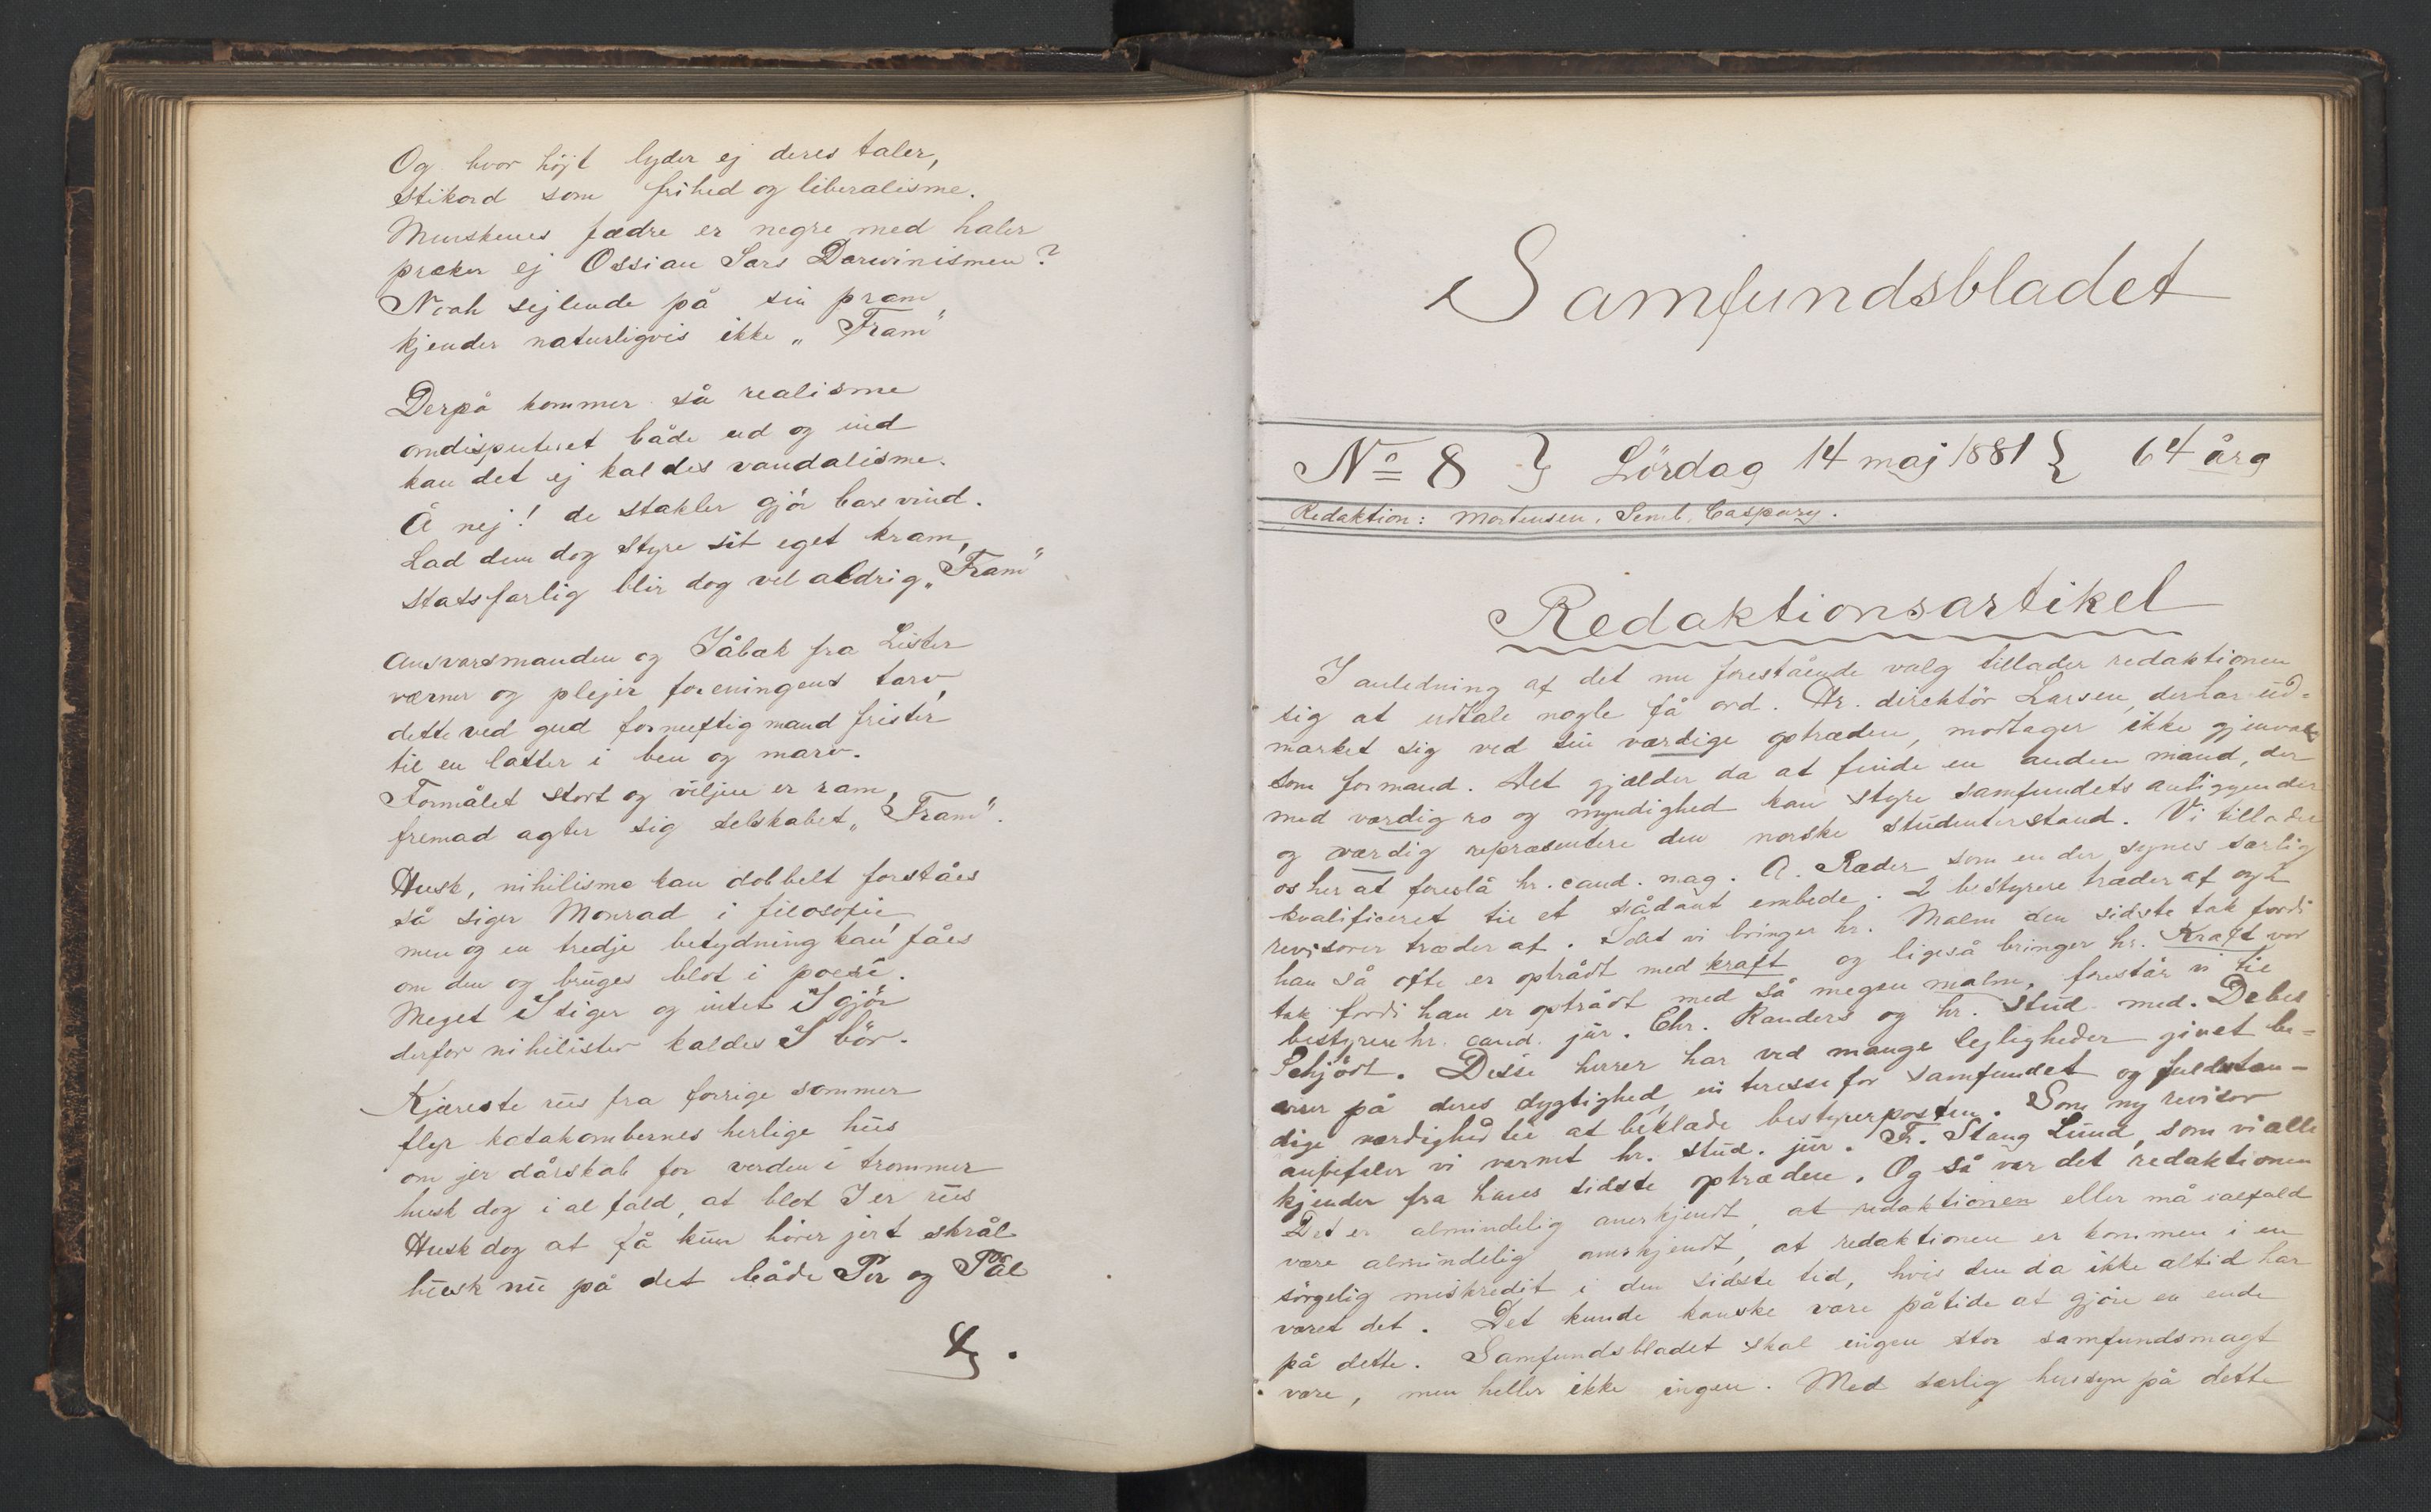 Og hvor højt lyder ej deres taler,
stikord som frihed og liberalisme.
Menskenes fædre er negre med haler
præker ej Ossian Sars Darwinismen?
Noah sejlende på sin pram
kjender naturligvis ikke „Fram"
Derpå kommer så realisme
omdisputeret både ud og ind
kan det ej kaldes vandalisme.
Å nej! de stakler gjør bare vind.
Lad dem dog styre sit eget kram,
statsfarlig blir dog vel aldrig „Fram"
Ansvarsmanden og Jåbæk fra Lister
værner og plejer foreningens tarv,
dette ved gud fornuftig mand frister
til en latter i ben og marv.
Formålet stort og viljen er ram,
fremad agter sig selskabet „Fram".
Husk, nihilisme kan dobbelt forståes
så siger Monrad i filosofie,
men og en tredje betydning kan fåes
om den og bruges blot i poesi.
Meget I siger og intet I gjör
derfor nihilister kaldes I bör.
Kjæreste rus fra forrige sommer
flyr katakombernes herlige hus
om jer dårskab for verden i trommer
husk dog i al fald, at blot I er rus
Husk dog at få kun hører jert skrål
husk nu på det både Per og Pål
Samfundsbladet
No 8 } Lördag 14 maj 1881 { 64 årg
Redaktion: Mortensen, Semb, Caspary.
Redaktionsartikel
I anledning af det nu forestående valg tillader redaktionen
sig at udtale nogle få ord. Hr. direktör Larsen, der har ud-
mærket sig ved sin værdige optræden, modtager ikke gjenvalg
som formand. Det gjælder da at finde en anden mand, der
med værdig ro og myndighed kan styre samfundets anliggender
og værdig repræsentere den norske studenterstand. Vi tillader
os her at foreslå hr. cand. mag. A. Ræder som en der synes særlig
kvalificeret til et sådant embede. 2 bestyrere træder af og 2
revisorer træder af. Idet vi bringer hr. Malm den sidste tak fordi
han så ofte er optrådt med kraft og ligeså bringer hr. Kraft vor
tak fordi han er optrådt med så megen malm, foreslår vi til
bestyrere hr. cand. jur. Chr. Randers og hr. stud. med. Debes
Schjödt. Disse herrer har ved mange lejligheder givet be-
viser på deres dygtighed, interesse for samfundet og fuldstæn-
dige værdighed til at beklæde bestyrerposten. Som ny revisor
anbefaler vi varmt hr. stud. jur. Fr. Stang Lund, som vi alle
kjender fra hans sidste optræden. Og så var det redaktionen
Det er almindelig anerkjendt, at redaktionen eller må ialfald
være almindelig anerkjendt, at redaktionen er kommen i en
sörgelig miskredit i den sidste tid, hvis den da ikke altid har
været det. Det kunde kanske være påtide at gjöre en ende
på dette. Samfundsbladet skal ingen stor samfundsmagt
være, men heller ikke ingen. Med særlig hensyn på dette